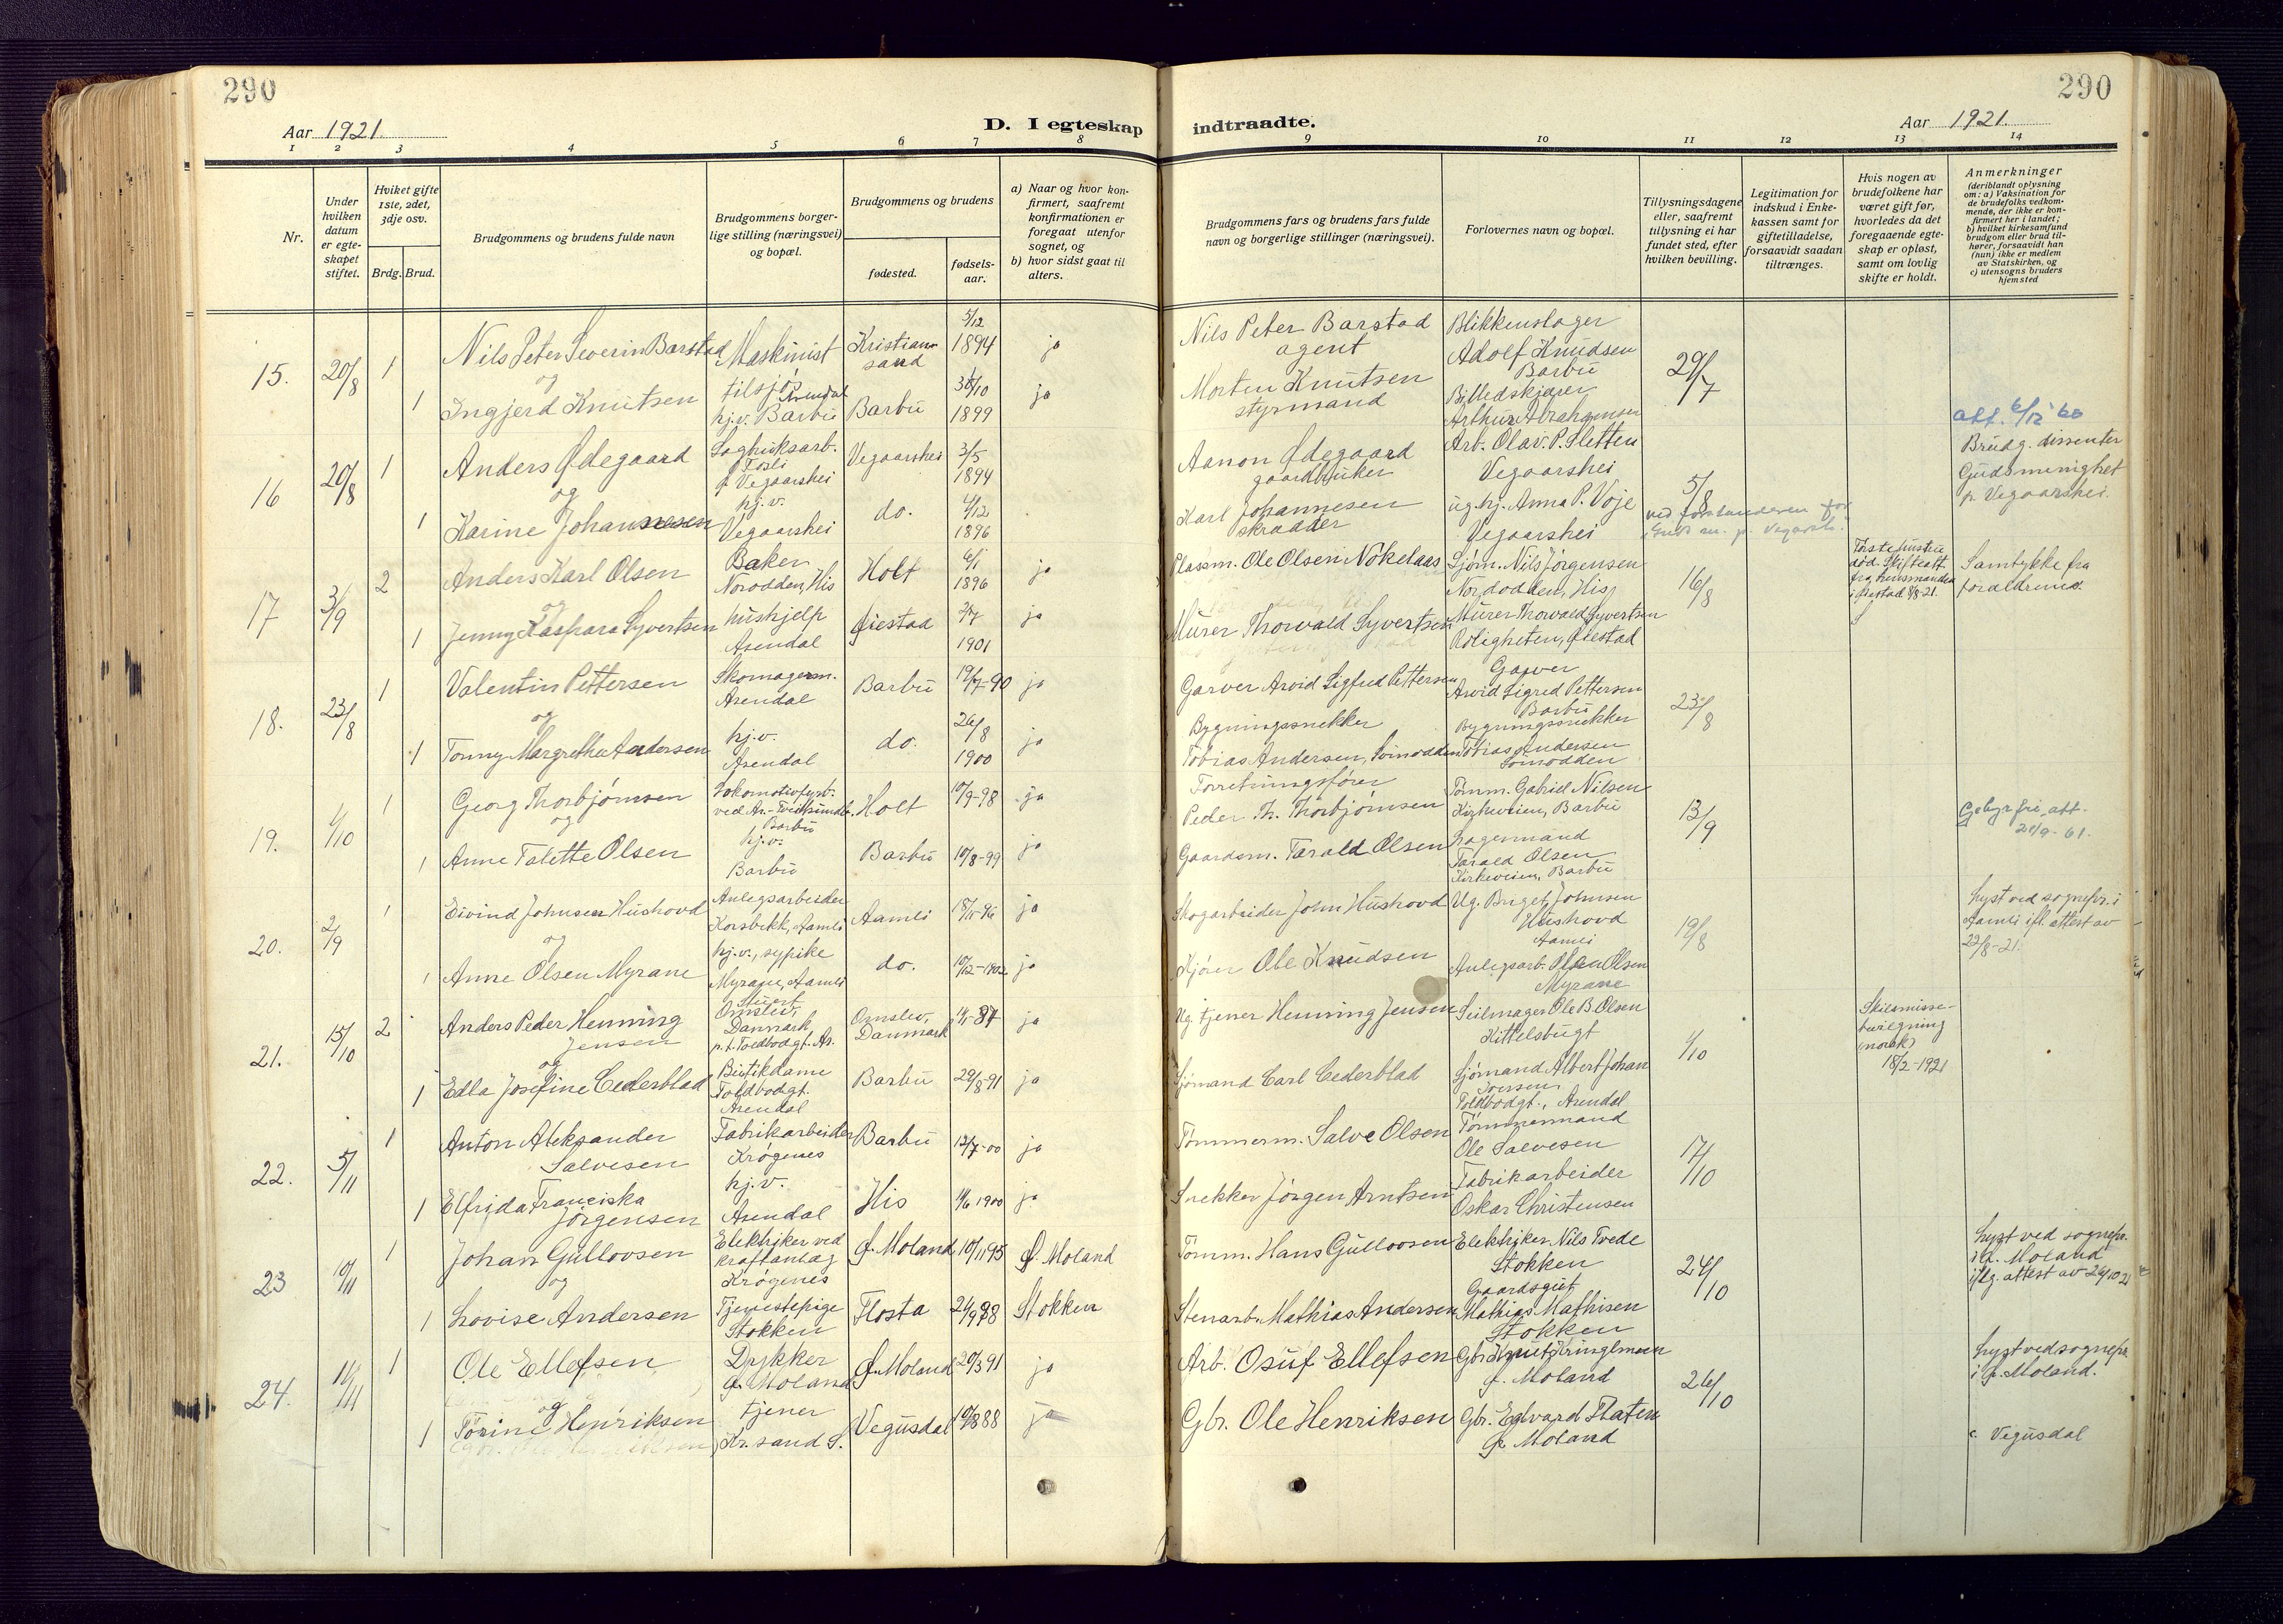 290
290
Aar 1921.
D. I egteskap
indtraadte.
Aar 1921.
1 2 3 4 5 6 7 8
9 10 11 12 13 14
Nr.
Under hvilken datum er egteskapet stiftet.
Hviket gifte 1ste, 2det, 3dje osv.
Brdg. Brud.
Brudgommens og brudens fulde navn
Brudgommens borgerlige stilling (næringsvei) og bopæl.
Brudgommens og brudens
fødested.
fødselsaar.
a) Naar og hvor konfirmert, saafremt konfirmationen er foregaat utenfor sognet, og
b) hvor sidst gaat til alters.
Brudgommens fars og brudens fars fulde navn og borgerlige stillinger (næringsvei).
Forlovernes navn og bopæl.
Tillysningsdagene eller, saafremt tillysning ei har fundet sted, efter hvilken bevilling.
Legitimation for indskud i Enkekassen samt for giftetilladelse, forsaavidt saadan tiltrænges.
Hvis nogen av brudefolkene har været gift før, hvorledes da det foregaaende egteskap er opløst, samt om lovlig skifte er holdt.
Anmerkninger
(deriblandt oplysning om: a) Vaksination for de brudefolks vedkommende, der ikke er konfirmert her i landet; b) hvilket kirkesamfund brudgom eller brud tilhører, forsaavidt han (hun) ikke er medlem av Statskirken, og c) utensogns bruders hjemsted
15. 20/8 1 Nils Peter Severin Barstad Maskinist tilsjø Arendal Kristiansand 5/12 1894 ja
Nils Peter Barstad agent Blikkenslager Adolf Knudsen Barbu 29/7
og
1 Ingjerd Knutsen hj.v. Barbu Barbu 1899 ja
Morten Knutsen styrmand Billedskjærer Arthur Abrahamsen
att. 6/12 60
16 20/8 1 Anders Ødegaard Sagbruksarb. Vegaarshei Vegaarshei 3/5 1894
Aanon Ødegaard gaardbruker Arb. Olav P. Sletten Vegaarshei 5/8
Brudg. dissenter Gudsmenighet p. Vegaarshei.
og
1 Karine Johannesen hj.v. Vegaarshei do. 4/12 1896
Karl Johannesen skrædder ug. hj. Anna P. Voje Vegaarshei
17 3/9 2 Anders Karl Olsen Baker Norodden, His Holt 6/1 1896 ja
Plassm. Ole Olsen Nøkelaas Sjøm. Nils Jørgensen Nordodden, His 16/8
Første hustru død. Skifteatt. fra lensmanden i Øiestad 8/8-21.
Samtykke fra forældrene.
og
1 Jenny Kaspara Syvertsen hushjelp Arendal Øiestad 1901 ja
Murer Thorvald Syvertsen Murer Thorvald Syvertsen Roligheten, Øiestad
18. 23/8 1 Valentin Pettersen Skomagerm. Arendal Barbu 19/7-90 ja
Garver Arvid Sigfred Pettersen Garver Arvid Sigred Pettersen Barbu 23/8
og
1 Tonny Margrethe Andersen hj.v. Arendal do. 26/8 1900 ja
Bygningssnekker Tobias Andersen, Somodden Bygningssnekker Tobias Andersen Somodden
19. 1/10 1 Georg Thorbjørnsen Lokomotivfyrb. ved Ar.-Treungb. Barbu Holt 10/9-98 ja
Forretningsfører Peder Th. Thorbjørnsen Tømm. Gabriel Nilsen Kirkeveien, Barbu 13/9
Gebyrfri att. 21/9-61.
og
1 Anne Talette Olsen hj.v. Barbu Barbu 10/8-99 ja
Gaardm. Tarald Olsen Lagermand Tarald Olsen Kirkeveien, Barbu
20. 2/9 1 Eivind Johnsen Hushovd Anlegsarbeider Korsbekk, Aamli Aamli 18/11-96 ja
Skogarbeider John Hushovd Ug. Birget Johnsen Hushovd Aamli 19/8
Lyst ved sognepr. i Aamli ifl. attest av 22/8-21.
og
1 Anne Olsen Myrane hj.v., sypike Myrane, Aamli do. 10/12-1902 ja
Kjører Ole Knudsen Anlegsarb. Olav Olsen Myrane
21. 15/10 2 Anders Peder Henning Jensen Stuert Omslev, Danmark p.t. Toldbodgt. Ar. Omslev, Danmark 11/1-87 ja
Ug. tjener Henning Jensen Seilmager Ole B. Olsen Kittelsbugt 1/10
Skilsmissebevilgning (norsk) 18/2-1921
og
1 Edla Josefine Cederblad Butikdame Toldbodgt. Arendal Barbu 29/8-91 ja
Sjømand Carl Cederblad Sjømand Albert Johan Iversen Toldbodgt., Arendal
22. 5/11 1 Anton Aleksander Salvesen Fabrikarbeider Krøgenes Barbu 13/7-00 ja
Tømmerm. Salve Olsen Tømmermand Ole Salvesen 17/10
1 Elfrida Franciska Jørgensen hj.v. Arendal His 11/6 1900 ja
Snekker Jørgen Arntsen Fabrikarbeider Oskar Christensen
23 10/11 1 Johan Gullovsen Elektriker ved kraftanlæg Krøgenes Ø. Moland 10/11 95 Ø. Moland
Tømm. Hans Gullovsen Elektriker Nils Tvede Stokken 24/10
Lyst ved sognepr. i Ø. Moland iflg. attest av 26/10 21
og
1 Lovise Andersen Tjenestepige Stokken Flosta 21/9 98 Stokken
Stenarb. Mathias Andersen Gaardsgut Mathias Mathisen Stokken
24. 11/11 1 Ole Ellefsen Dykker Ø. Moland Ø. Moland 20/3 91 ja
Arb. Osuf Ellefsen Gbr. Knut Kringlmoen Ø. Moland 26/10
Lyst ved sognepr. i Ø. Moland.
og
1 Torine Henriksen tjener Kr.sand S. Vegusdal 10/8 88 ja
Gbr. Ole Henriksen Gbr. Edvard Flaten Ø. Moland
c. Vegusdal